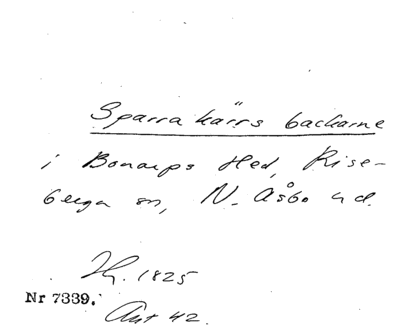 Sparrakärrs backarne
i Bonarps Hed, Rise-
berga sn, N. Åsbo hd.
Hg. 1825
Nr 7339.
Akt 42.